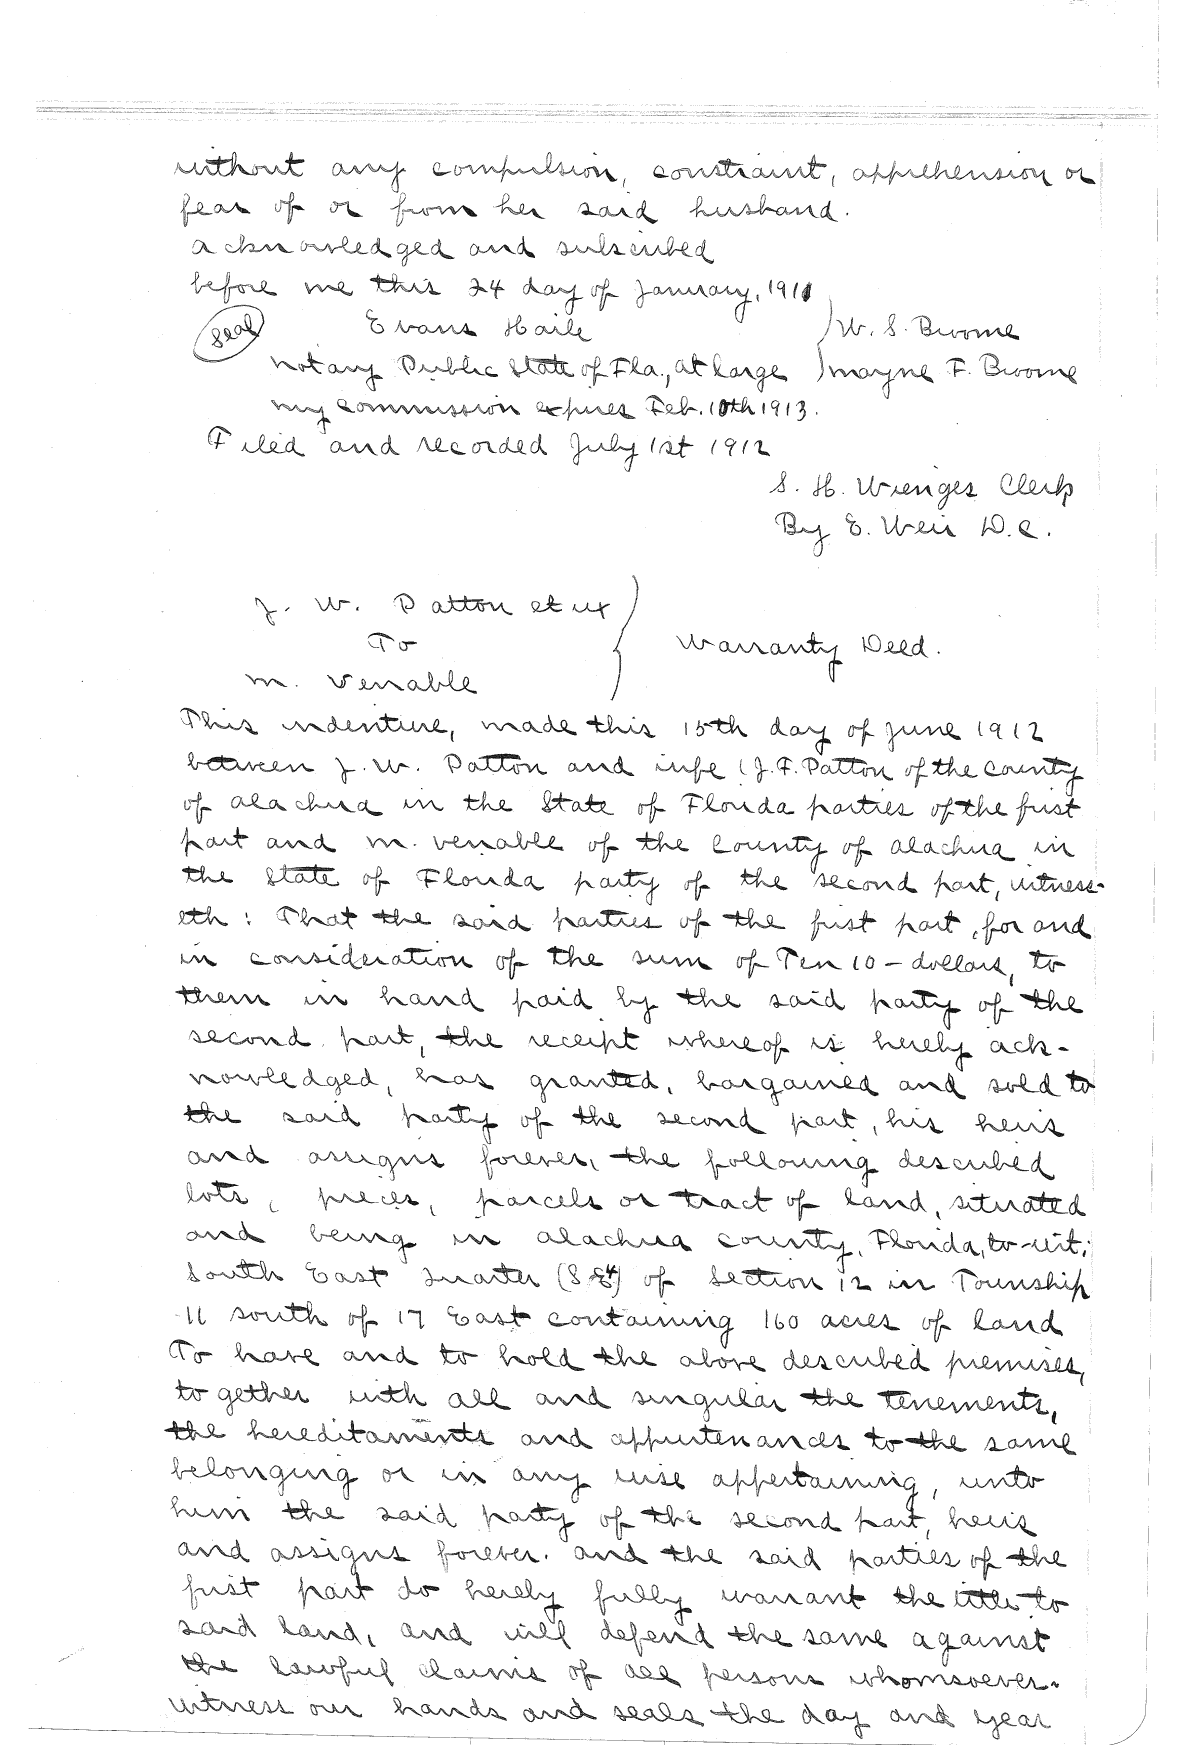 without any compulsion, constraint, apprehension or
fear of or from her said husband.
acknowledged and subscribed
before me this 24 day of January, 1911
Seal Evans Haile ) W. S. Broome
notary Public State of Fla., at large ) mayne F. Broome
my commission expires Feb. 10th 1913.
Filed and recorded July 1st 1912
S. H. Wienges Clerk
By E. Weir D.C.
J. W. Patton et ux
To } Warranty Deed.
m. Venable
This indenture, made this 15th day of June 1912
between J. W. Patton and wife (J. F. Patton of the County
of alachua in the State of Florida parties of the first
part and m. venable of the County of alachua in
the State of Florida party of the second part, witness-
eth: That the said parties of the first part, for and
in consideration of the sum of Ten 10 - dollars, to
them in hand paid by the said party of the
second part, the receipt whereof is hereby ack-
nowledged, has granted, bargained and sold to
the said party of the second part, his heirs
and assigns forever, the following described
lots, pieces, parcels or tract of land, situated
and being in alachua county, Florida, to-wit;
South East Quarter (S E4) of Section 12 in Township
11 south of 17 East containing 160 acres of land
To have and to hold the above described premises,
to gether with all and singular the tenements,
the hereditaments and appurtenances to the same
belonging or in any wise appertaining, unto
him the said party of the second part, heirs
and assigns forever. and the said parties of the
first part do hereby fully warrant the title to
said land, and will defend the same against
the lawful claims of all persons whomsoever.
witness our hands and seals the day and year